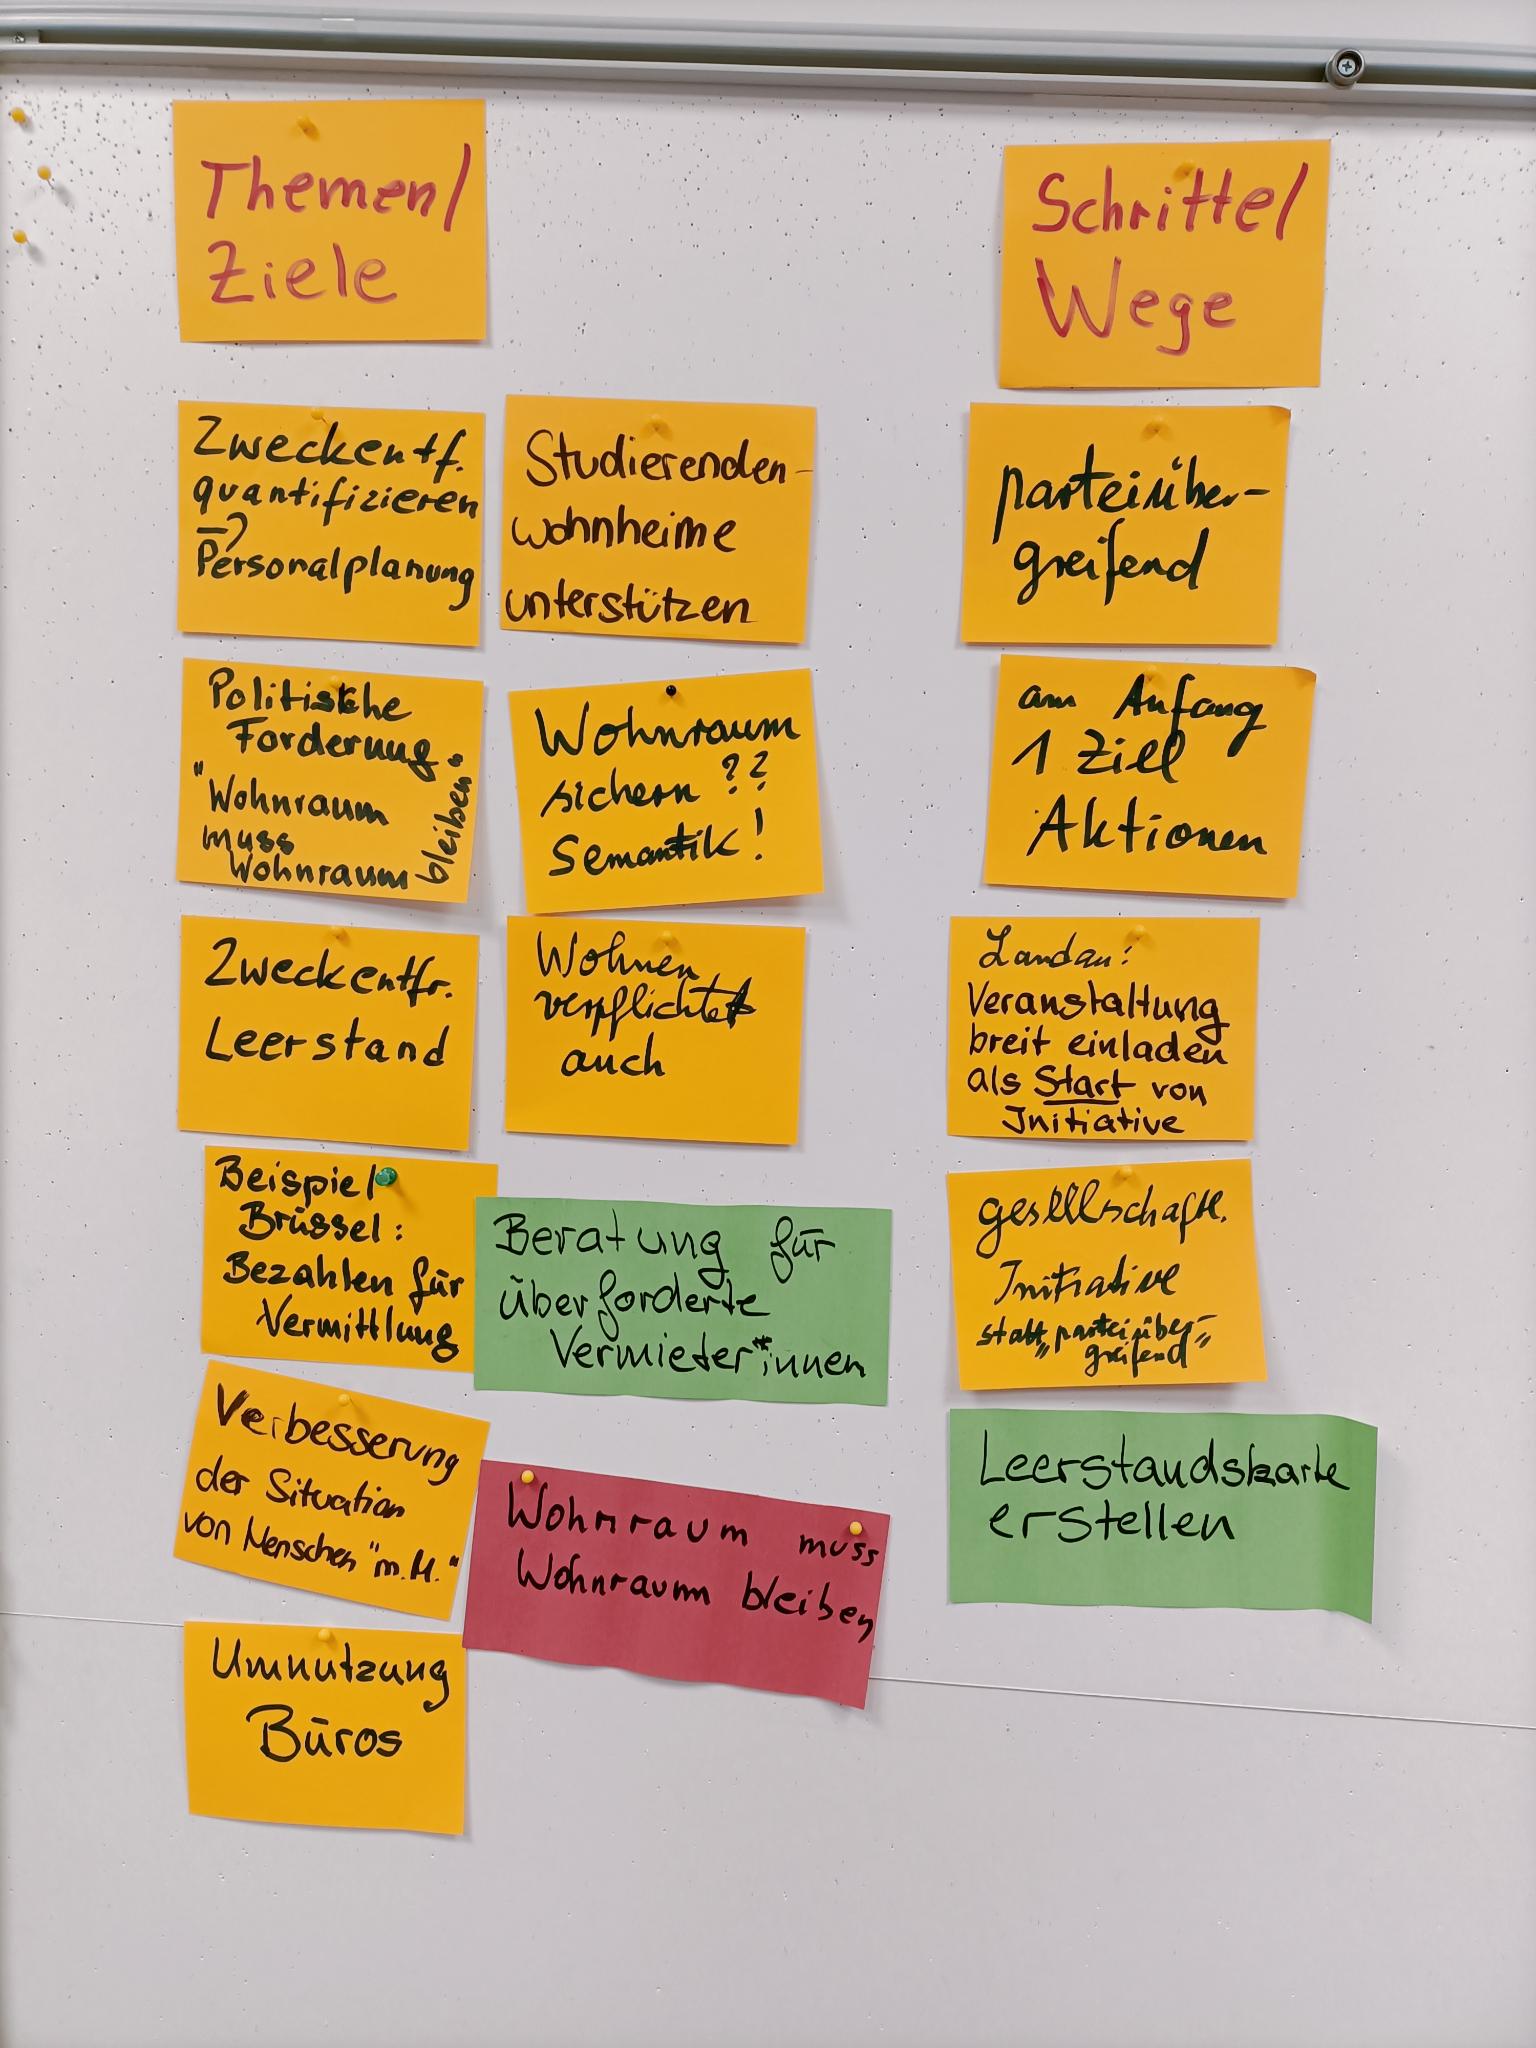 Themen/
Ziele
Zweckentf.
quantifizieren
->
Personalplanung
Politische
Forderung
"Wohnraum
muss
Wohnraum
bleiben"
Zweckentfr.
Leerstand
Beispiel
Brüssel:
Bezahlen für
Vermittlung
Verbesserung
der Situation
von Menschen "m.M."
Umnutzung
Büros
Studierenden-
wohnheime
unterstützen
Wohnraum
sichern ??
Semantik!
Wohnen
verpflichtet
auch
Beratung für
überforderte
Vermieter*innen
Wohnraum muss
Wohnraum bleiben
Schritte/
Wege
parteiüber-
greifend
am Anfang
1 Ziel
Aktionen
Landau:
Veranstaltung
breit einladen
als Start von
Initiative
gesellschaftl.
Initiative
statt "parteiüber-
greifend"
Leerstandskarte
erstellen